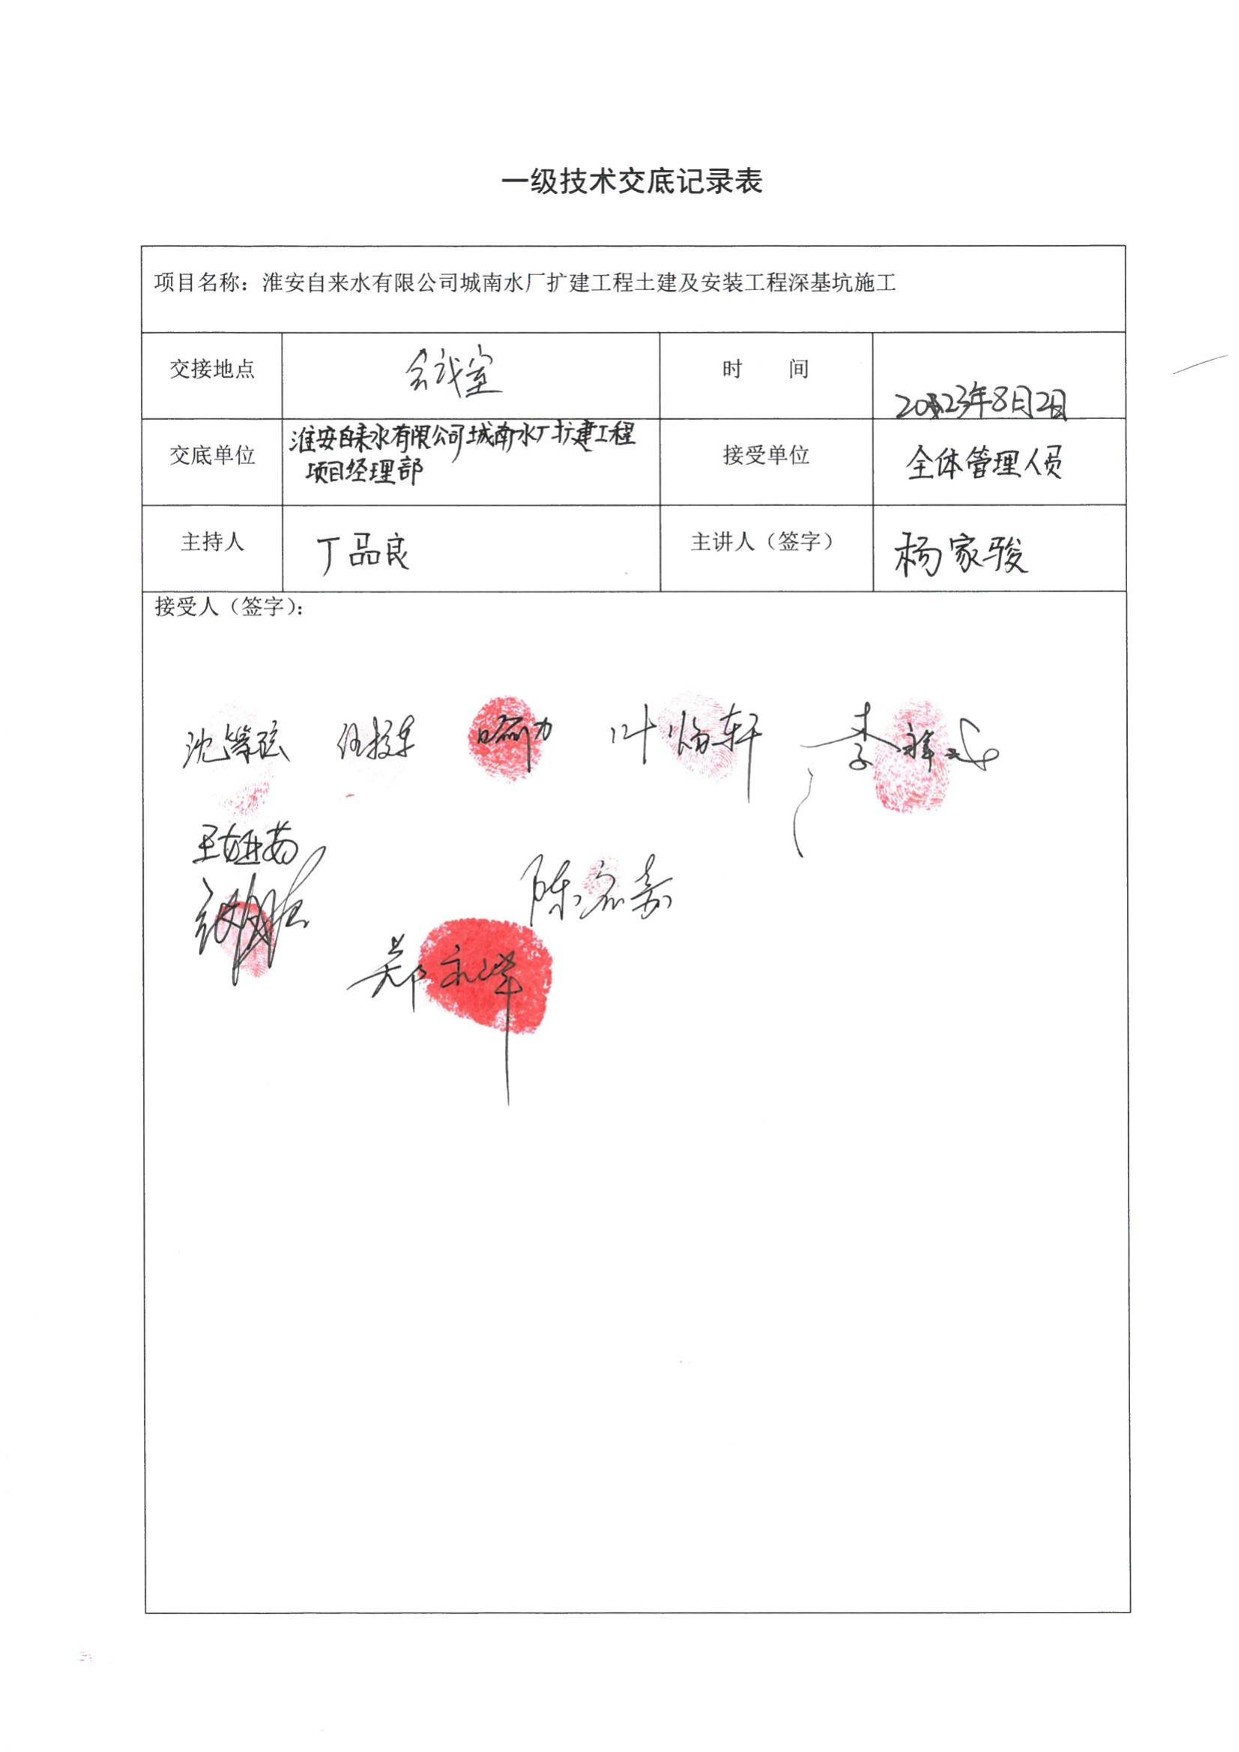 一级技术交底记录表
项目名称：淮安自来水有限公司城南水厂扩建工程土建及安装工程深基坑施工
交接地点 会议室 时 间 2023年8月2日
交底单位 淮安自来水有限公司城南水厂扩建工程
项目经理部 接受单位 全体管理人员
主持人 丁品良 主讲人（签字） 杨家骏
接受人（签字）：
喻力 叶怡轩 李祥
陈嘉
郑永祥